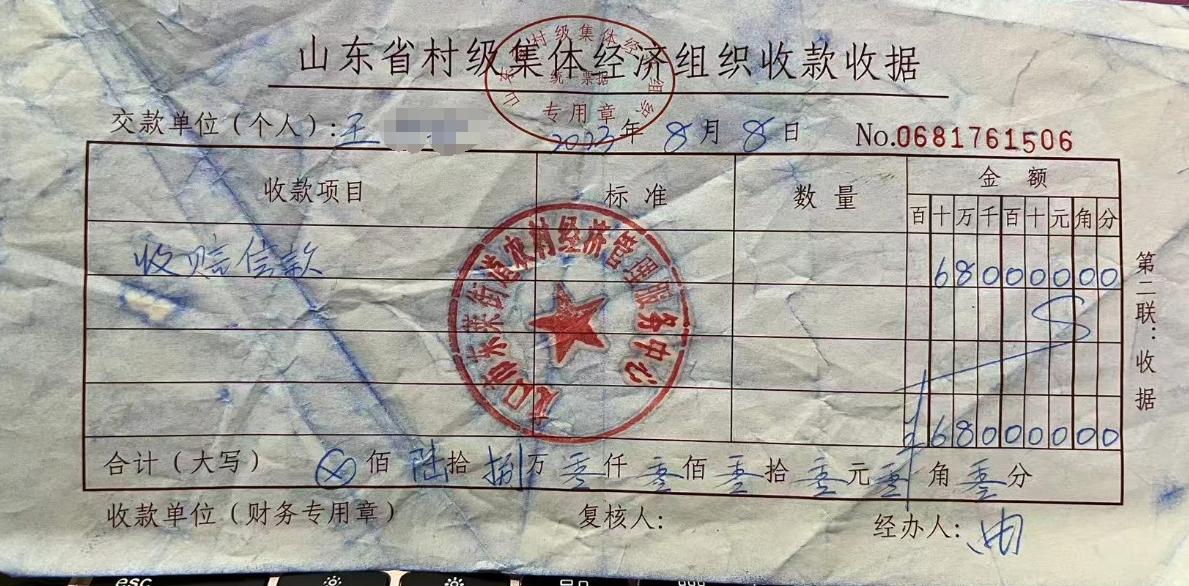 山东省村级集体经济组织收款收据
山东省村级集体经济组织
统一票据
专用章
交款单位（个人）：王 2023年8月8日 No.0681761506
收款项目 标准 数量 金额
百十万千百十元角分
收赔偿款 68000000
龙口市东莱街道农村经济管理服务中心
68000000
合计（大写） ⊗佰陆拾捌万零仟零佰零拾零元零角零分
收款单位（财务专用章） 复核人： 经办人：
第二联：收据
esc